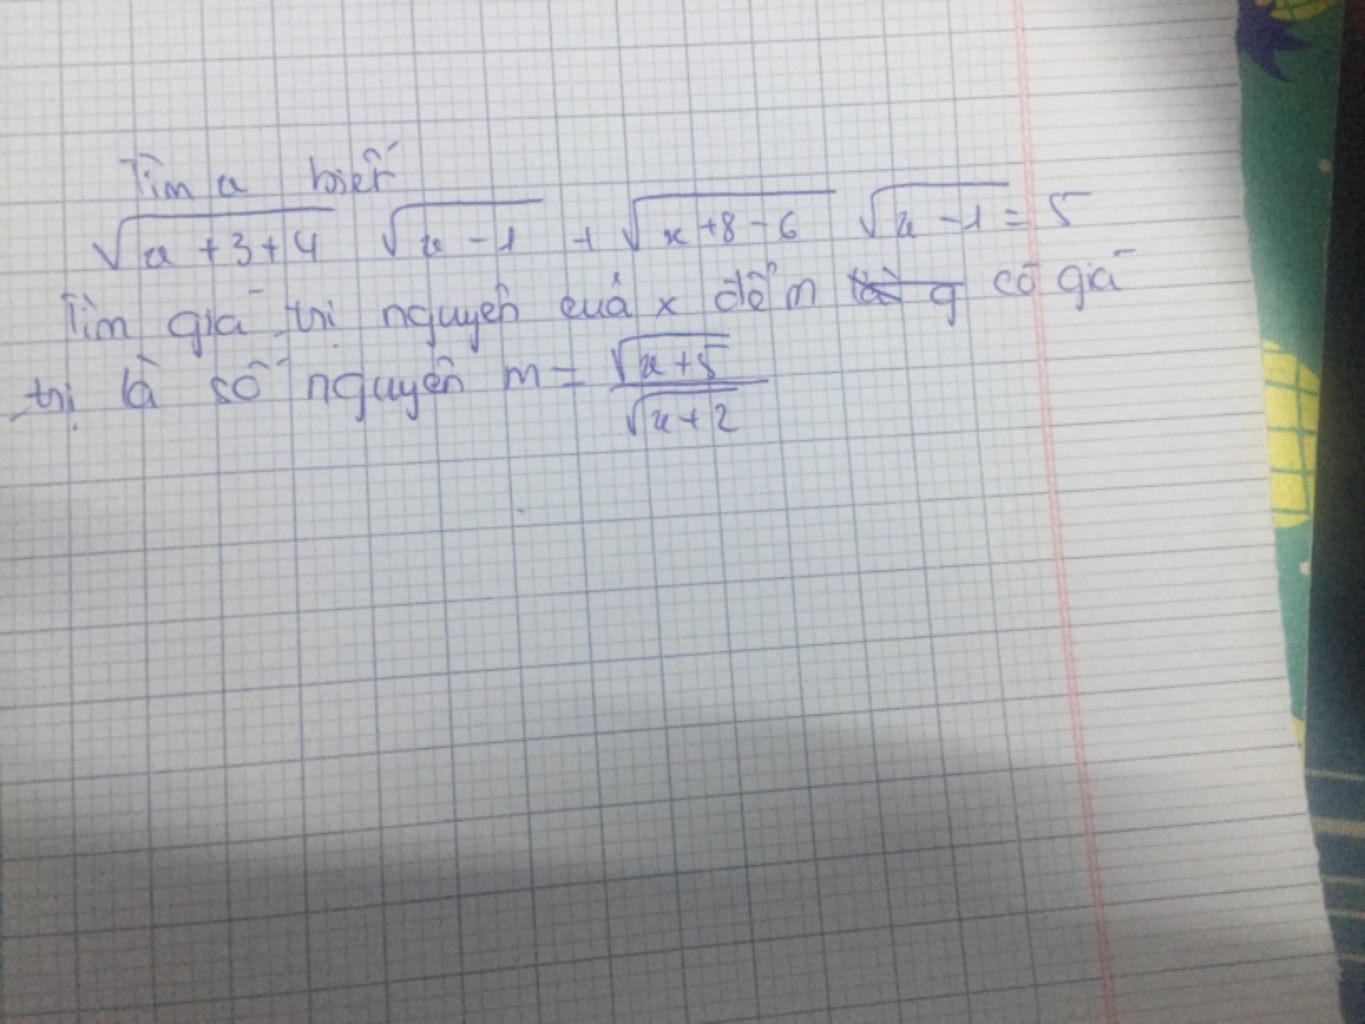 Tìm x biết
√x+3+4 √x-1 + √x+8-6 √x-1 = 5
Tìm giá trị nguyên cuả x để m có giá
trị là số nguyên m = √x+5 / √x+2